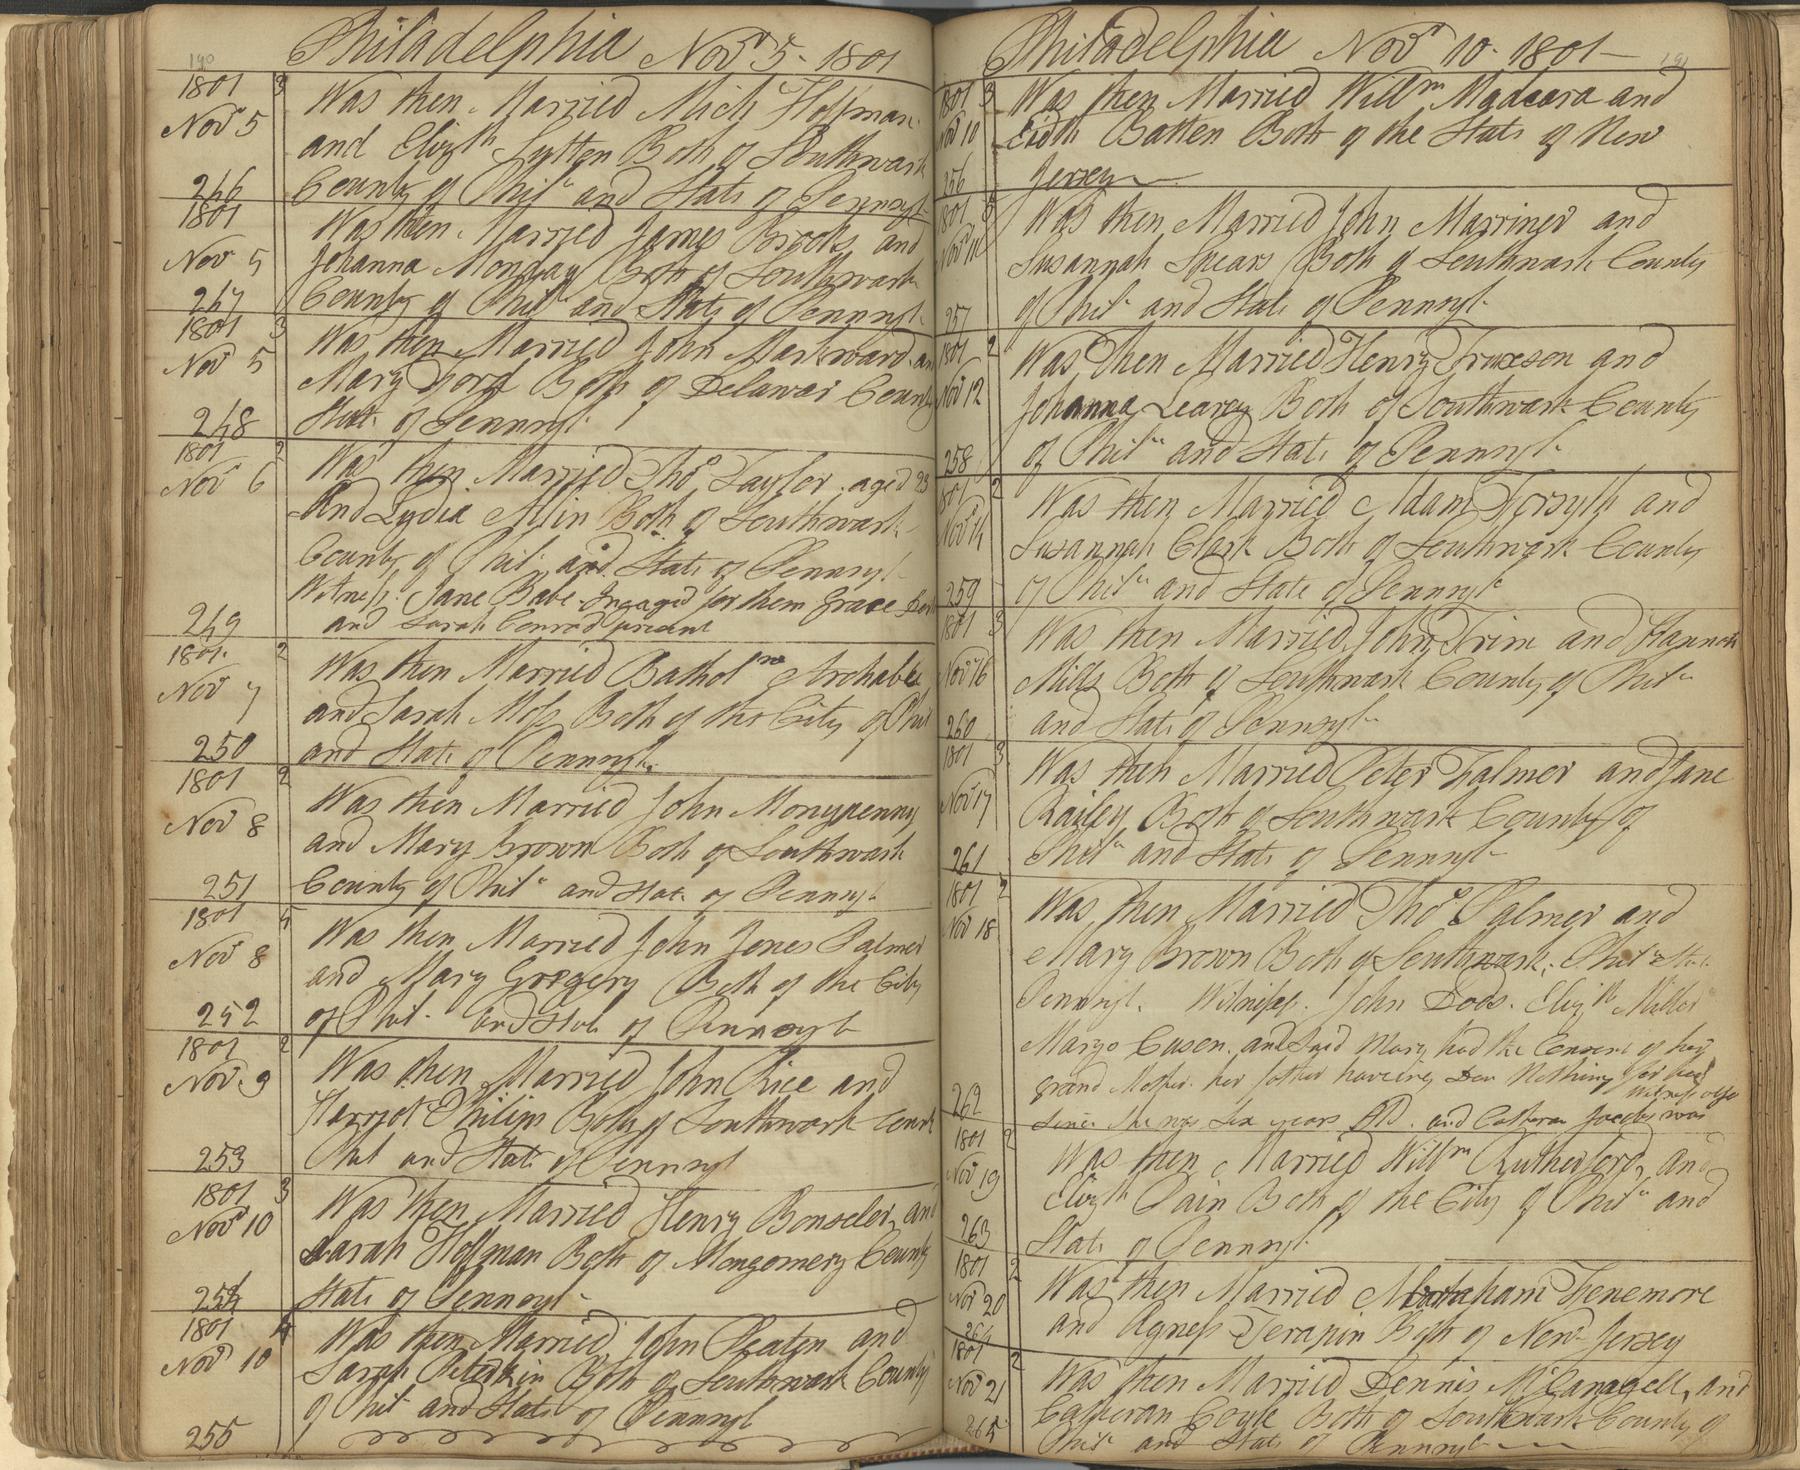 190
Philadelphia Novr 5 - 1801
1801 3
Novr 5
Was then Married Mich Hoffman
and Elizth Sutton Both of Southwark
246
County of Phila and State of Pennsyl
1801
Was then Married James Brooks and
Novr 5
Johanna Monday Both of Southwark
247
County of Phila and State of Pennsyl
1801 3
Was then Married John Markward an
Novr 5
Mary Ford Both of Delawar County
248
State of Pennsyl
1801 2
Was then Married Thos Taylor aged 23
Novr 6
And Lydia Allin Both of Southwark
County of Phil and State of Pennsyl
Witness Jane Babe Engaged for them Grace
249
and Sarah Conrod present
1801 2
Was then Married Bathol
Novr 7
and Sarah Moss Both of the City of Phil
250
and State of Pennsyl
1801 2
Was then Married John Monypenny
Novr 8
and Mary Brown Both of Southwark
251
County of Phila and State of Pennsyl
1801 5
Was then Married John Jones Palmer
Novr 8
and Mary Gregery Both of the City
252
of Phil and State of Pennsyl
1801 2
Was then Married John Rice and
Novr 9
Herriot Philips Both of Southwark Count
253
Phil and State of Pennsyl
1801 3
Was then Married Henry Bonseler and
Novr 10
Sarah Hoffman Both of Montgomery County
254
State of Pennsyl
1801 4
Was then Married John Peaten and
Novr 10
Sarah Peterkin Both of Southwark County
of Phil and State of Pennsyl
255
191
Philadelphia Novr 10 - 1801
1801 3
Was then Married Willm Madeara and
Novr 10
Edith Batten Both of the State of New
256
Jersey
1801 3
Was then Married John Marriner and
Susannah Spears Both of Southwark County
257
of Phila and State of Pennsyl
1801 2
Was then Married Henry Truxeson and
Novr 12
Johanna Learey Both of Southwark County
258
of Phila and State of Pennsyl
1801 2
Was then Married Adam Forsyth and
Novr 14
Susannah Clark Both of Southwark County
259
of Phila and State of Pennsyl
1801 3
Was then Married John Trim and Hannah
Novr 16
Mills Both of Southwark County of Phila
260
and State of Pennsyl
1801 3
Was then Married Peter Falmer and Jane
Novr 17
Bailey Both of Southwark County of
261
Phila and State of Pennsyl
1801 2
Was then Married Thos Palmer and
Novr 18
Mary Brown Both of Southwark Phila State
Pennsyl. Witnesses John Dods. Elizth Miller
Margo Cason and Said Mary had the Consent of her
grand Mother her father haveing Don Nothing for her
witness also
262
since she was six years old and Catheran Jacobs was
1801 2
Was then Married Willm Rutherford and
Novr 19
Elizth Pain Both of the City of Phila and
263
State of Pennsyl
1801 2
Was then Married Abraham Fenemore
Novr 20
264
and Agness Terapin Both of New Jersey
1801 2
Was then Married Dennis and
Novr 21
Catheran Coyle Both of Southwark County of
265
Phila and State of Pennsyl